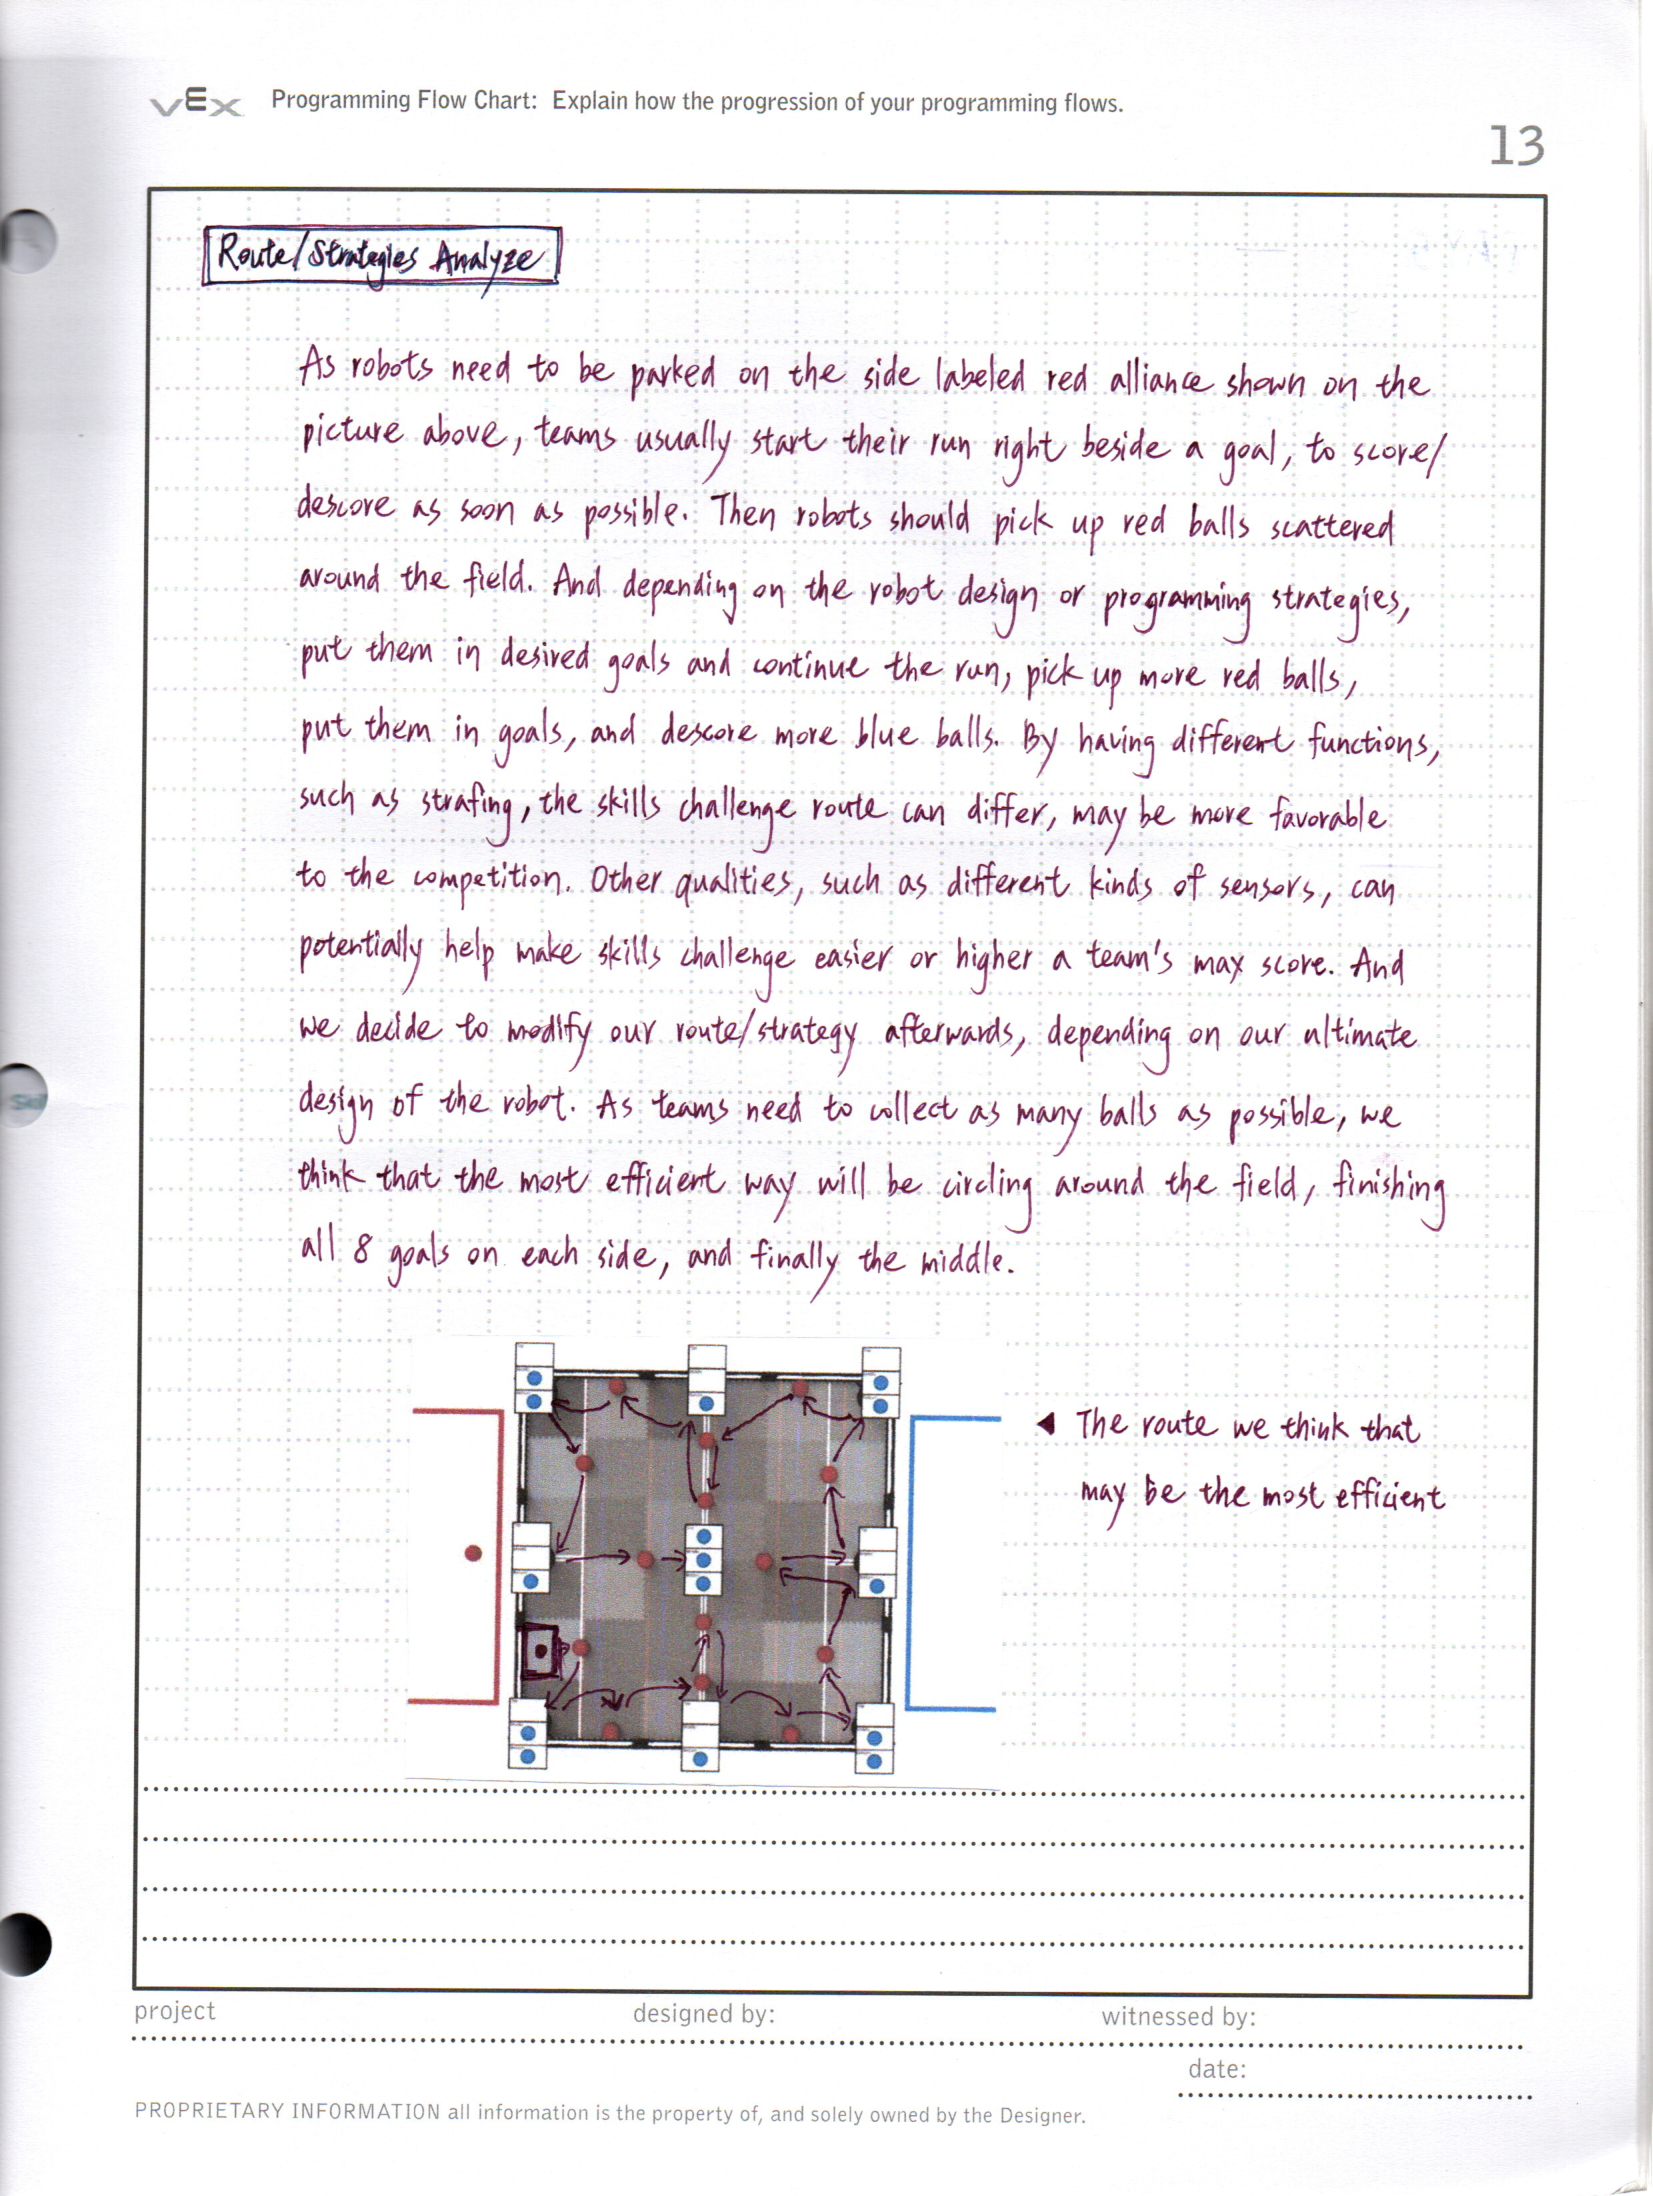 vEx Programming Flow Chart: Explain how the progression of your programming flows.
13
Route/Strategies Analyze
As robots need to be parked on the side labeled red alliance shown on the
picture above, teams usually start their run right beside a goal, to score/
descore as soon as possible. Then robots should pick up red balls scattered
around the field. And depending on the robot design or programming strategies,
put them in desired goals and continue the run, pick up more red balls,
put them in goals, and descore more blue balls. By having different functions,
such as strafing, the skills challenge route can differ, may be more favorable
to the competition. Other qualities, such as different kinds of sensors, can
potentially help make skills challenge easier or higher a team's max score. And
we decide to modify our route/strategy afterwards, depending on our ultimate
design of the robot. As teams need to collect as many balls as possible, we
think that the most efficient way will be circling around the field, finishing
all 8 goals on each side, and finally the middle.
◄ The route we think that
may be the most efficient
project designed by: witnessed by:
date:
PROPRIETARY INFORMATION all information is the property of, and solely owned by the Designer.